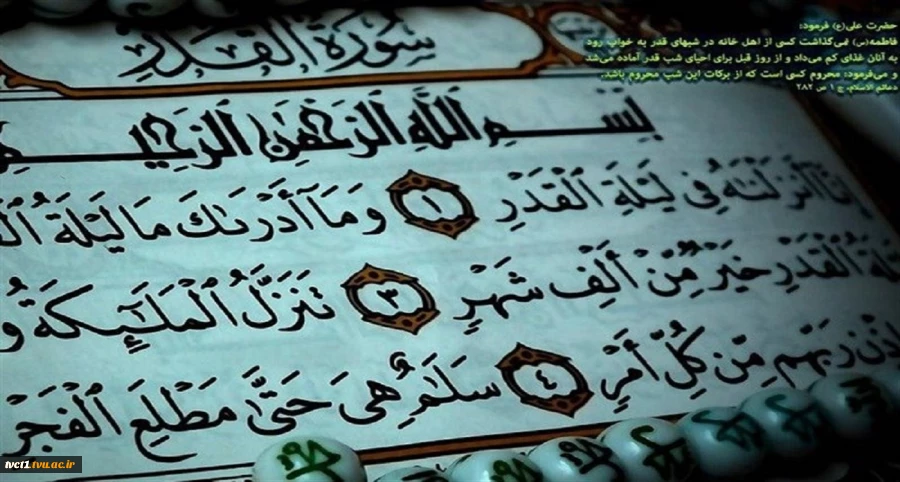 حضرت علی(ع) فرمود:
فاطمه(س) نمی‌گذاشت کسی از اهل خانه در شبهای قدر به خواب رود
به آنان غذای کم می‌داد و از روز قبل برای احیای شب قدر آماده می‌شد
و می‌فرمود: محروم کسی است که از برکات این شب محروم باشد.
دعائم الاسلام، ج ۱ ص ۲۸۲
سُورَةُ الْقَدْرِ
بِسْمِ اللَّهِ الرَّحْمَٰنِ الرَّحِيمِ
إِنَّا أَنْزَلْنَاهُ فِي لَيْلَةِ الْقَدْرِ ١ وَمَا أَدْرَىٰكَ مَا لَيْلَةُ
الْقَدْرِ خَيْرٌ مِّنْ أَلْفِ شَهْرٍ ٣ تَنَزَّلُ الْمَلَائِكَةُ وَ
رَبِّهِم مِّن كُلِّ أَمْرٍ ٤ سَلَامٌ هِيَ حَتَّىٰ مَطْلَعِ الْفَجْرِ
tvct1.tvu.ac.ir